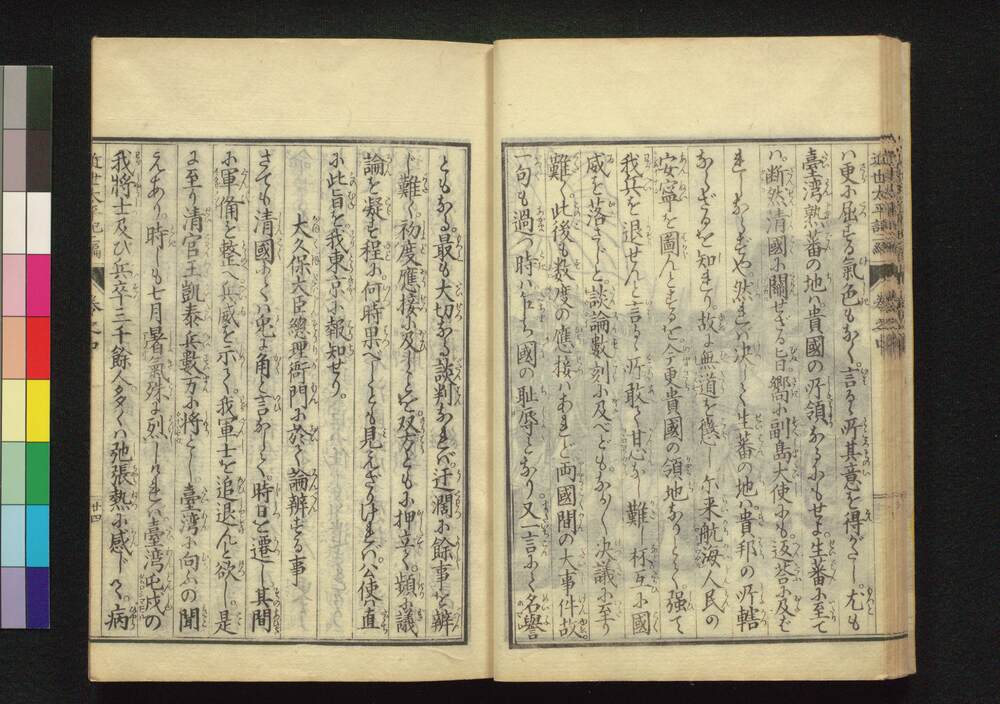 近世太平記二編 巻之四
ハ更に屈する氣色もなく言る所其意を得がたし尤も
臺湾熟蕃の地ハ貴國の所領なるにもせよ生蕃に至て
ハ断然清國に關せざる旨嚮に副島大使にも返答に及ば
れしならずや然れバ决して生蕃の地ハ貴邦の所轄
ならざるを知れり故に無道を懲し尓来航海人民の
安寧を圖んとするを今更貴國の領地なりとて强て
我兵を退せんと言るゝ所敢て甘心なし難し杯互に國
威を落さじと談論数刻に及べどもなかゝ决議に至り
難く此後も数度の應接ハあれど両國間の大事件故
一句も過つ時ハ忽ち國の恥辱となり又一言にて名譽
ともなる最も大切なる談判なれバ迂濶に餘事を辨
じ難く初度應接に及しと雖双方とも押立て頻に議
論を凝せ程に何時果べしとも見えざりけれバ公使ハ直
に此旨を我東京に報知せり。
大久保大臣總理衙門に於て論辨する事
さても清國にてハ兎よ角と言なして時日を遷し其間
に軍備を整へ兵威を示して我軍士を追退んと欲し是
に至り清官王凱泰兵数万に將とし臺湾に向ふの聞
えあり時しも七月暑氣殊よ烈しけれバ臺湾屯戍の
我將士及び兵卒三千餘人多くハ弛張熱に感じて病
近世太平記二編 巻之四
廿四